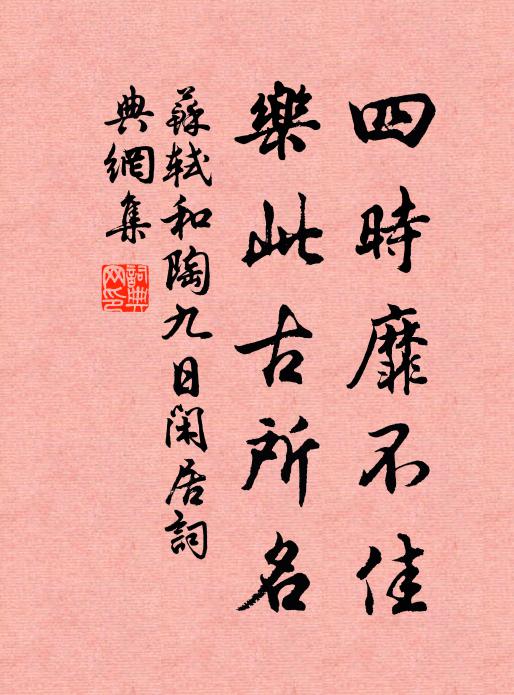 四時靡不佳
樂此古所名
蘇軾和陶九日閑居詞
典網集
詞典网印